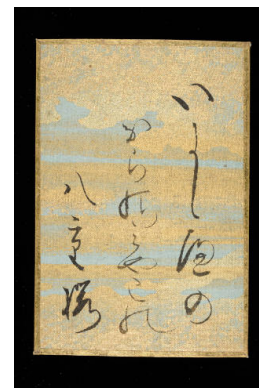 いにしへの
ならのみやこの
八重櫻